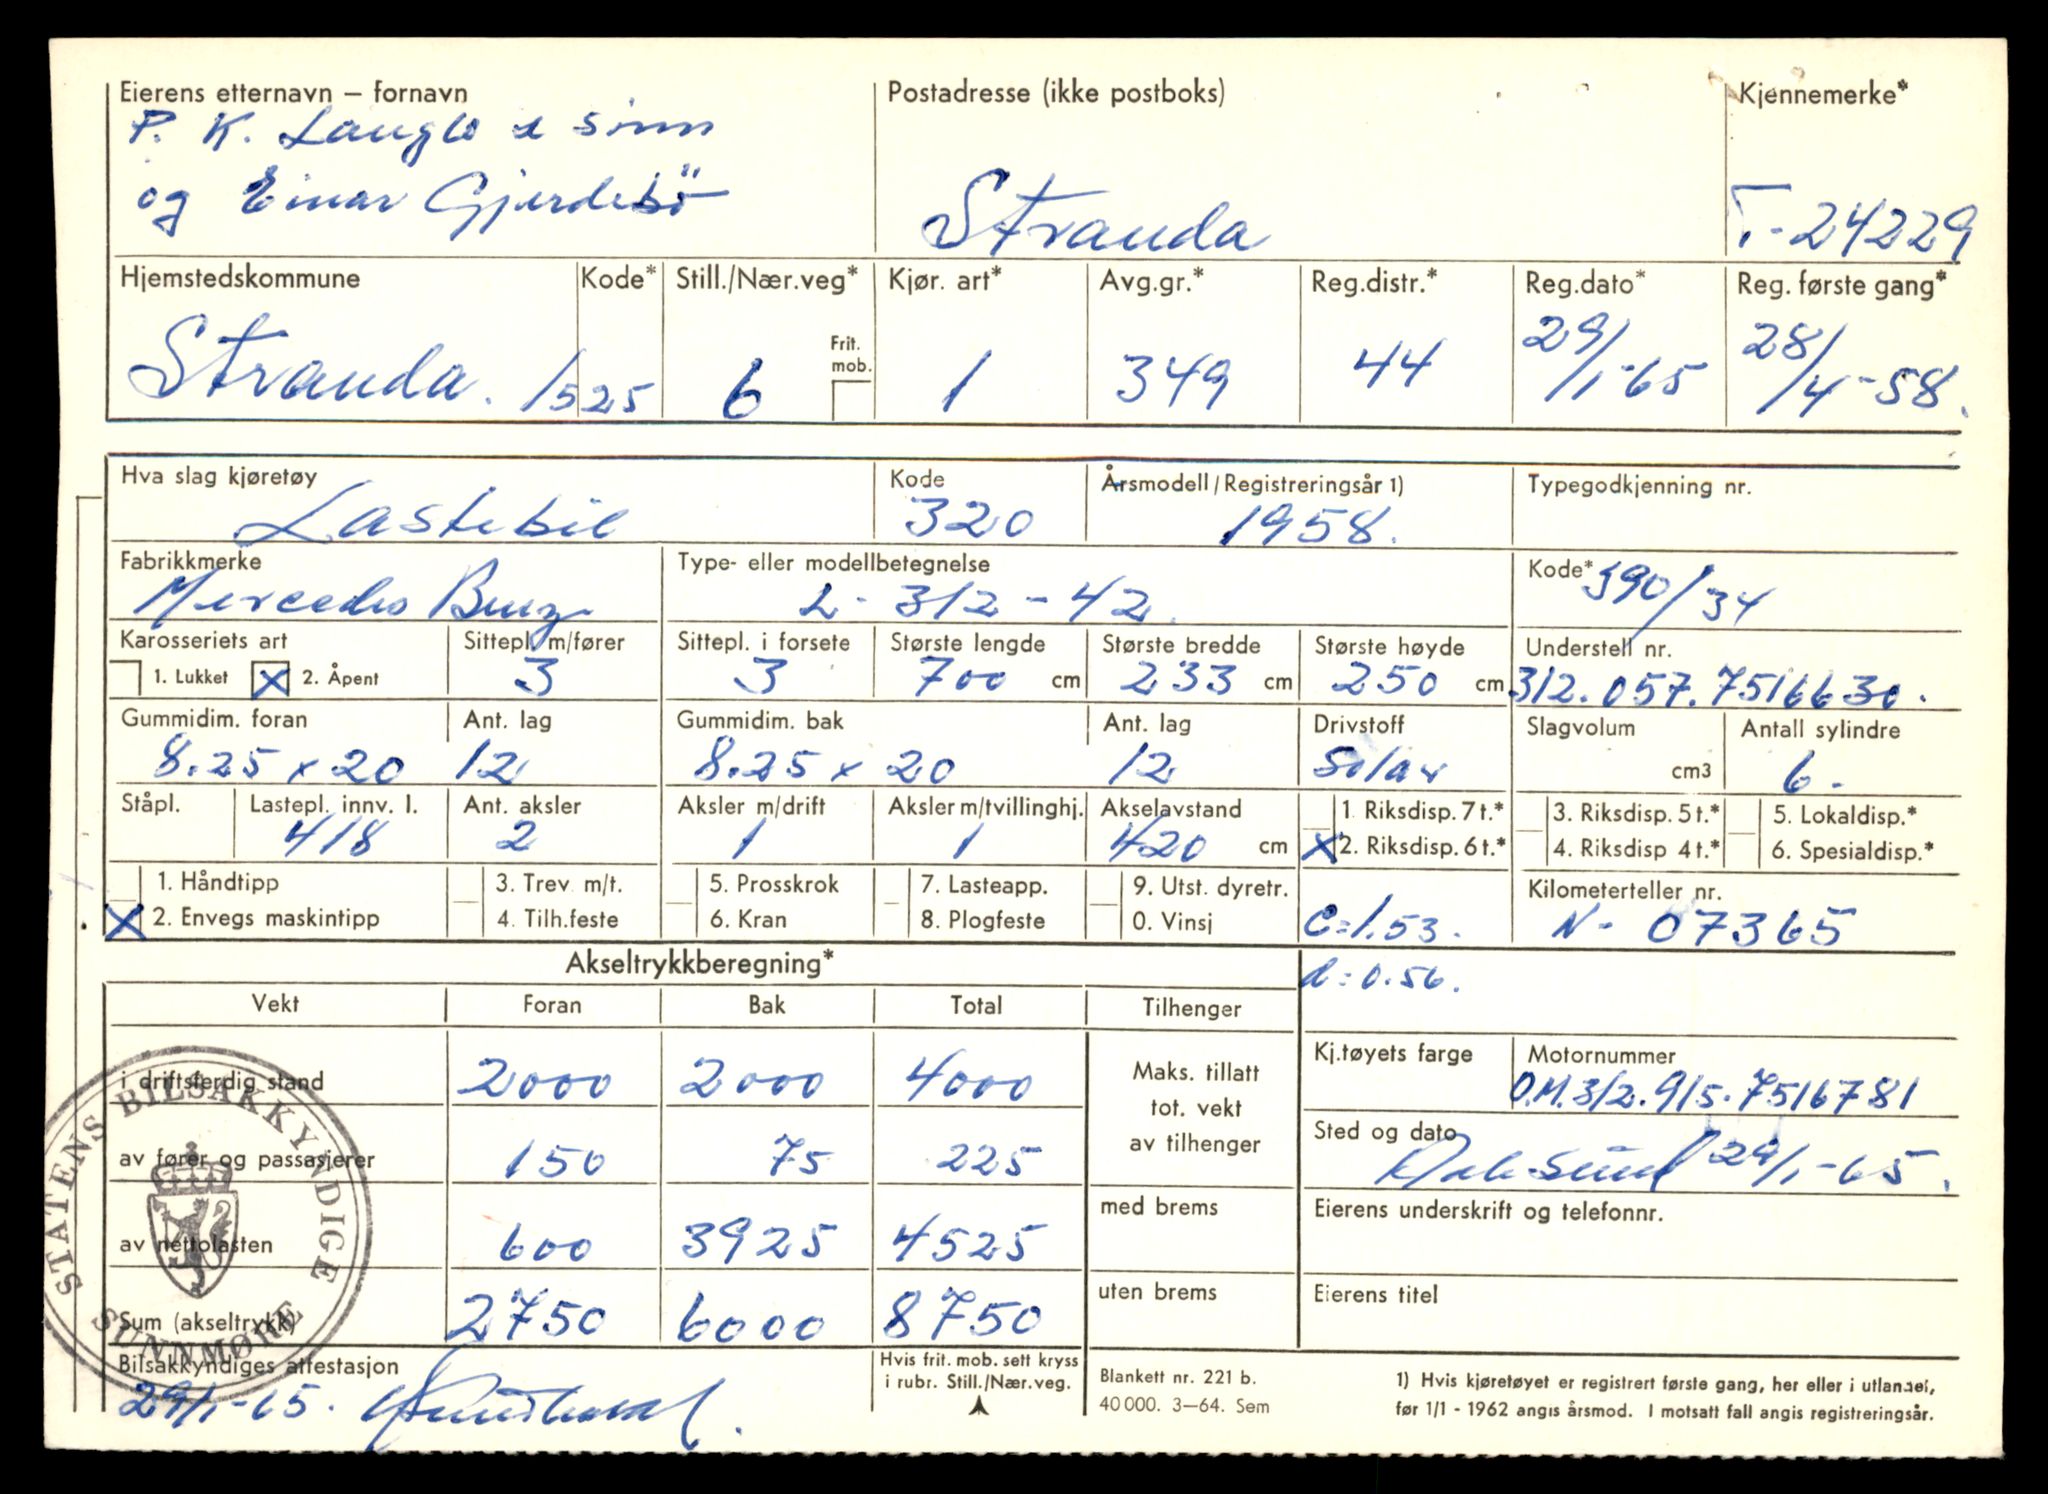 Eierens etternavn – fornavn
Postadresse (ikke postboks)
Kjennemerke*
P. K. Langlo & sønn
og Einar Gjerdebö
Stranda
T-24229
Hjemstedskommune
Kode*
Still./Nær.veg*
Kjør. art*
Avg.gr.*
Reg.distr.*
Reg.dato*
Reg. første gang*
Frit. mob.
Stranda. 1525
6
1
349
44
29/1-65
28/4-58.
Hva slag kjøretøy
Kode
Årsmodell/Registreringsår 1)
Typegodkjenning nr.
Lastebil
320
1958.
Fabrikkmerke
Type- eller modellbetegnelse
Kode*
Mercedes Benz
L-312-42
390/34
Karosseriets art
Sittepl. m/fører
Sittepl. i forsete
Største lengde
Største bredde
Største høyde
Understell nr.
1. Lukket
X 2. Åpent
3
3
700 cm
233 cm
250 cm
312.057.7516630.
Gummidim. foran
Ant. lag
Gummidim. bak
Ant. lag
Drivstoff
Slagvolum
Antall sylindre
8.25 x 20
12
8.25 x 20
12
Solar
cm3
6.
Ståpl.
Lastepl. innv. l.
Ant. aksler
Aksler m/drift
Aksler m/tvillinghj.
Akselavstand
1. Riksdisp. 7 t.*
3. Riksdisp. 5 t.*
5. Lokaldisp.*
418
2
1
1
420 cm
X 2. Riksdisp. 6 t.*
4. Riksdisp 4 t.*
6. Spesialdisp.*
1. Håndtipp
3. Trev. m/t.
5. Prosskrok
7. Lasteapp.
9. Utst. dyretr.
Kilometerteller nr.
X 2. Envegs maskintipp
4. Tilh.feste
6. Kran
8. Plogfeste
0. Vinsj
C=1.53.
N- 07365
Akseltrykkberegning*
d=0.56.
Vekt
Foran
Bak
Total
Tilhenger
i driftsferdig stand
2000
2000
4000
Maks. tillatt
tot. vekt
av tilhenger
Kj.tøyets farge
Motornummer
O.M.312.915.7516781
av fører og passasjerer
150
75
225
Sted og dato
Aalesund 29/1-65.
av nettolasten
600
3925
4525
med brems
Eierens underskrift og telefonnr.
Sum (akseltrykk)
2750
6000
8750
uten brems
Eierens titel
Bilsakkyndiges attestasjon
29/1-65.
Hvis frit. mob. sett kryss
i rubr. Still./Nær.veg.
Blankett nr. 221 b.
40 000. 3–64. Sem
1) Hvis kjøretøyet er registrert første gang, her eller i utlandet,
før 1/1 - 1962 angis årsmod. I motsatt fall angis registreringsår.
STATENS BILSAKKYNDIGE
SUNNMØRE